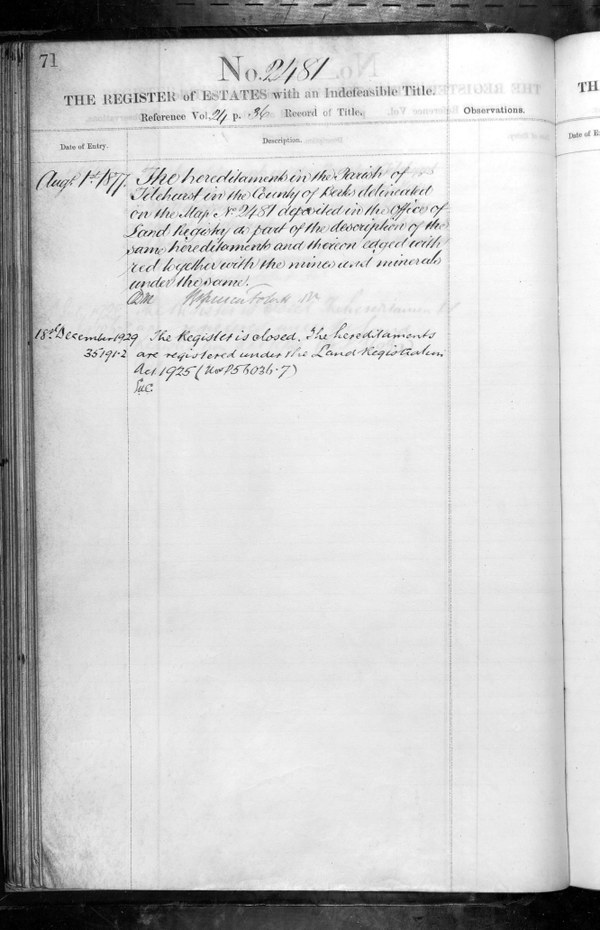 71
No. 2481
THE REGISTER of ESTATES with an Indefeasible Title.
Reference Vol. 24 p. 36 Record of Title.
Observations.
Date of Entry.
Description.
Augt 1st 1877. The hereditaments in the Parish of
Tilehurst in the County of Berks delineated
on the Map No. 2481 deposited in the Office of
Land Registry as part of the description of the
same hereditaments and thereon edged with
red together with the mines and minerals
under the same.
18th December 1929 The Register is closed. The hereditaments
35191·2 are registered under the Land Registration
Act 1925 (Nos P56036·7)
TH
Date of E